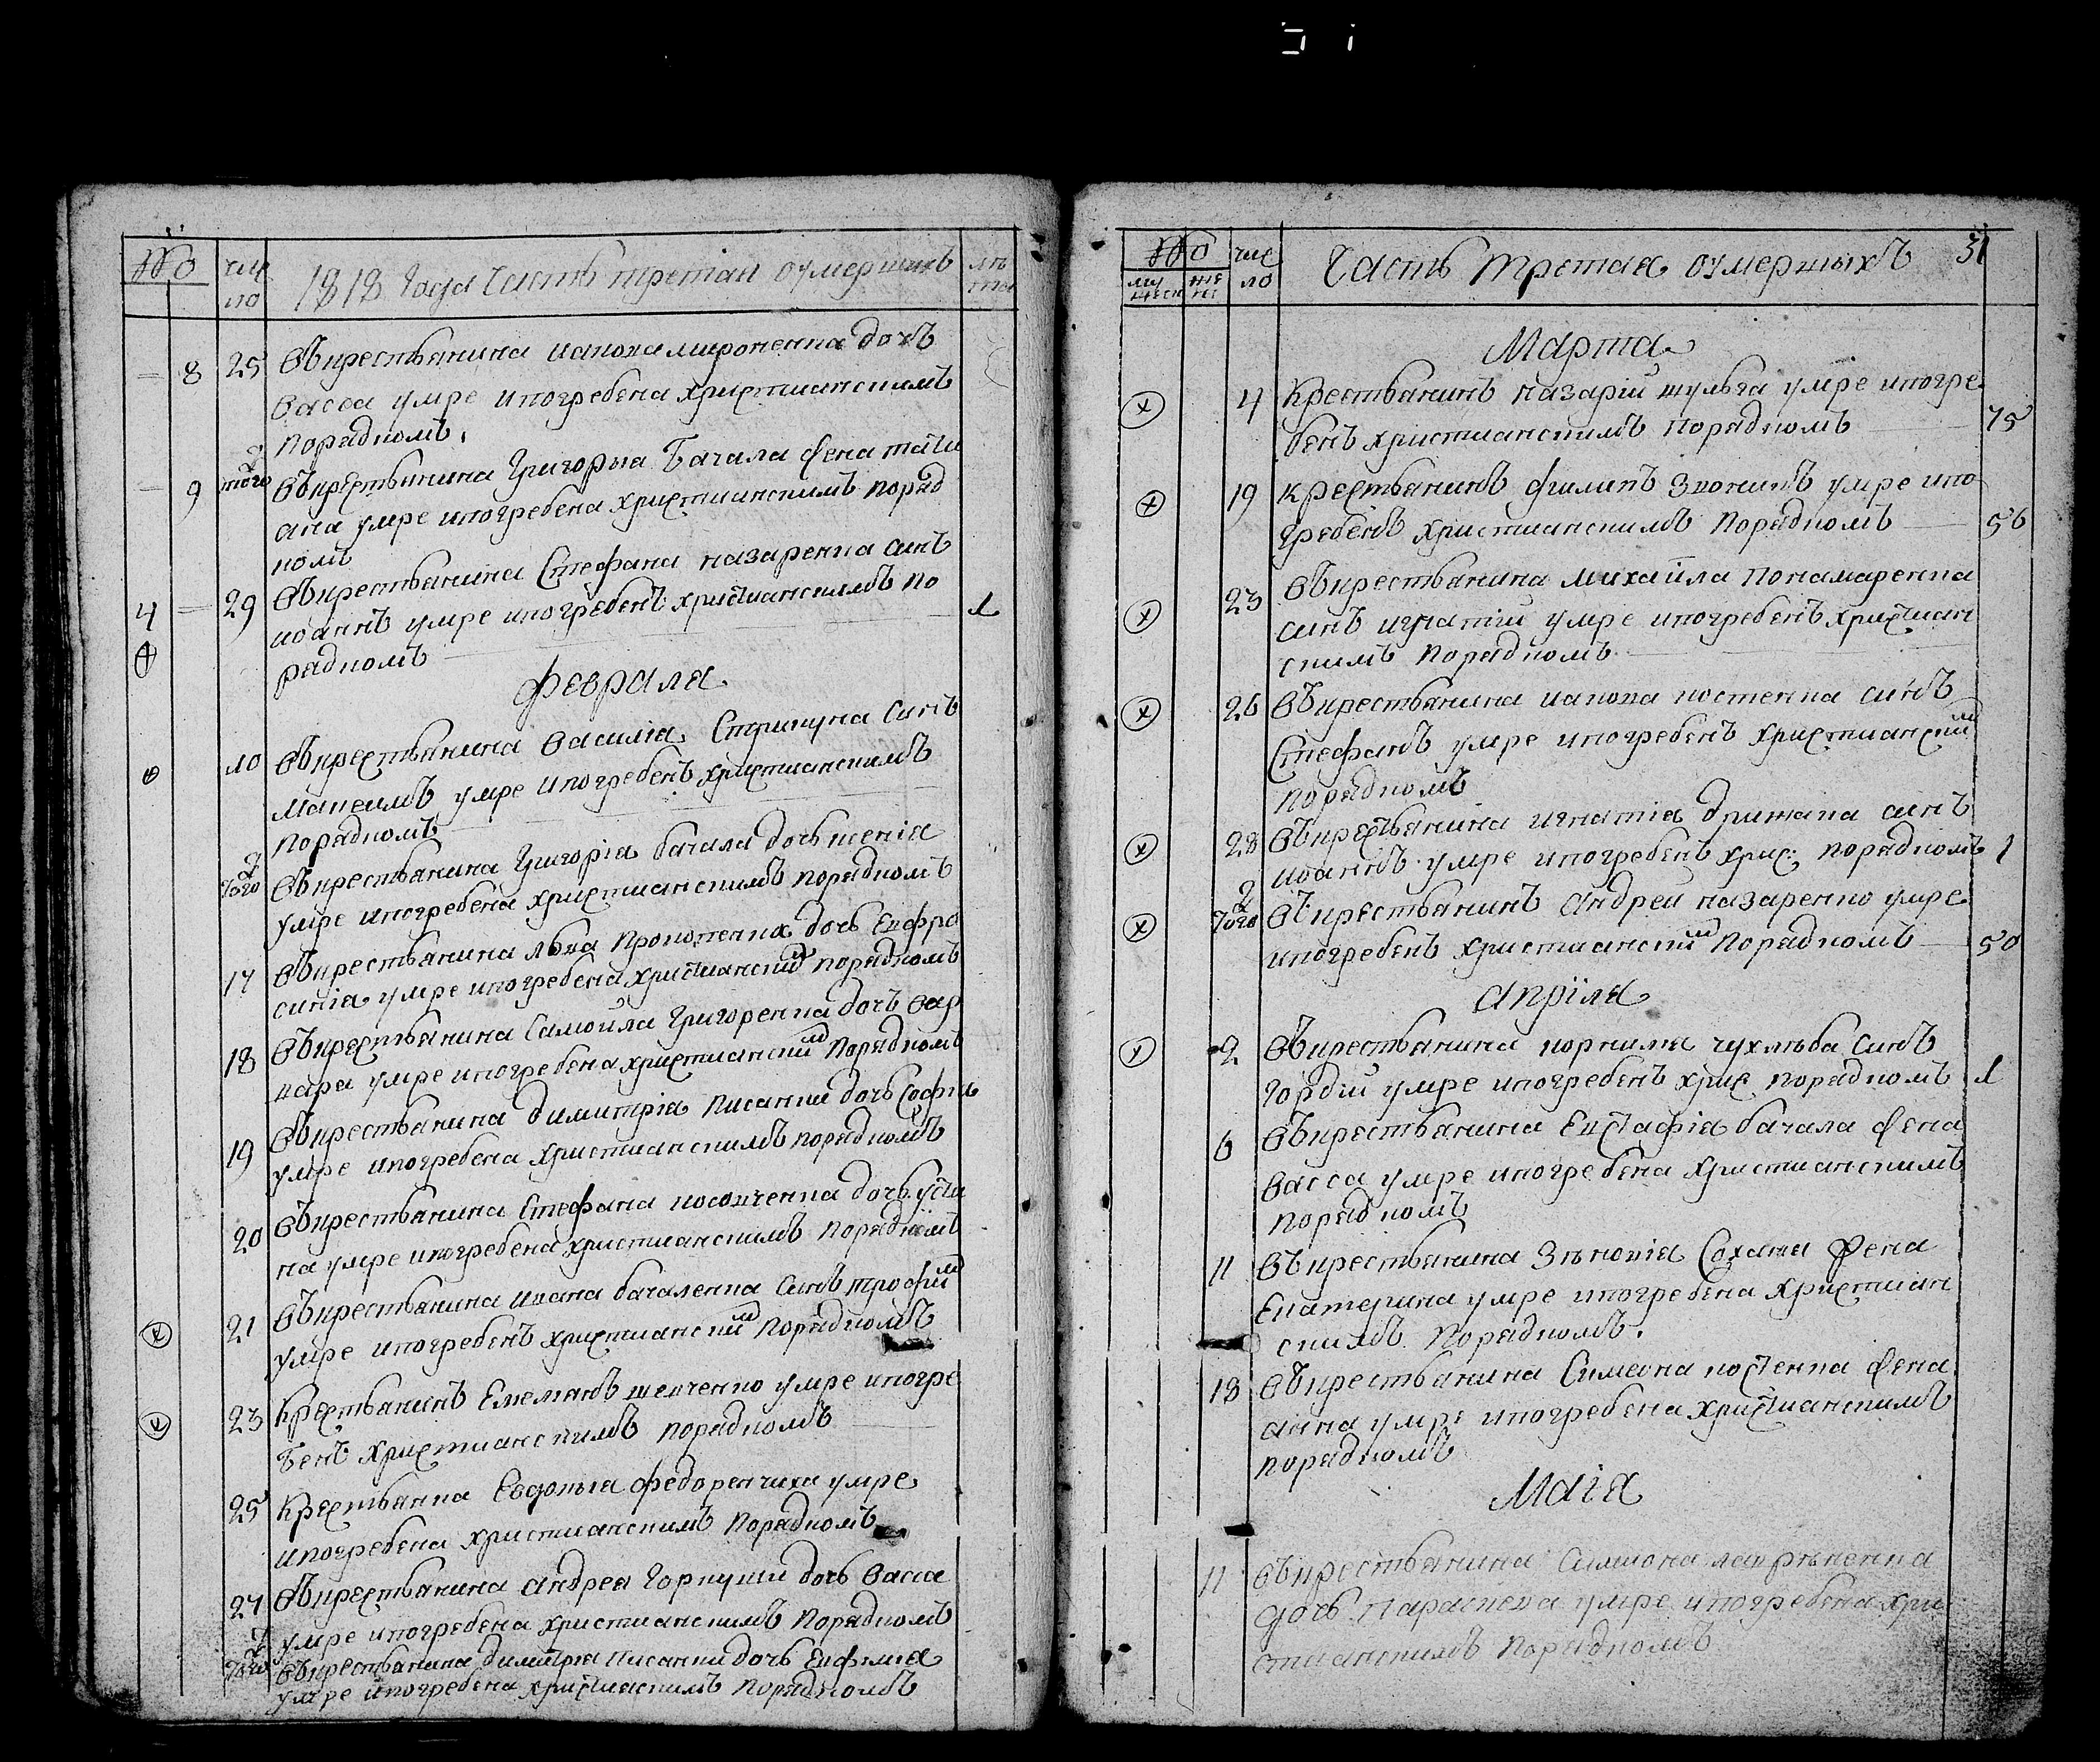 № чис
ло 1818 Года Часть третая оумершихъ лѣ
та
8 25 Въ крестьянина иакова мироненка дочъ
васса умре ипогребена христианскимъ
порядкомъ.
9 того Въ крестьянина Григорыа Бачала Жена тати
ана умре ипогребена христианскимъ поряд
комъ
4 29 Въ крестьянина Стефана назаренка синъ
иоаннъ умре ипогребенъ христианскимъ по 1
рядкомъ
февраля
10 Въ крестьянина василіа Стрикуна Синъ
Мапеимъ умре ипогребенъ христианскимъ
порядкомъ
того Въ крестьянина Григоріа бачала дочь ксеніа
умре ипогребена христианскимъ порядкомъ
17 Въ крестьянина лвва Прокопенка дочь Еифро
синіа умре ипогребена христианским порядкомъ
18 Въ крестьянина Самоила Григоренка дочъ вар
вара умре ипогребена христианским порядкомъ
19 Въ крестьянина димитріа писаний дочь Софиа
умре ипогребена христианскимъ порядкомъ
20 Въ крестьянина Стефана дочь усти
на умре ипогребена христианскимъ порядкомъ
21 Въ крестьянина ивана бачаленка Синъ трофим
умре ипогребенъ христианским порядкомъ
23 Крестьянинъ Емелианъ шевченко умре ипогре
бенъ христианскимъ порядкомъ
25 Крестьянка Евдокыа федоренчиха умре
ипогребена христианскимъ порядкомъ
27 Въ крестьянина андреа Горкуши дочь васса
умре ипогребена христианскимъ порядкомъ
того Въ крестьянина димитріа писаний дочь Еифиміа
умре ипогребена христианскимъ порядкомъ
№ чис
ло Часть третая оумершыхъ 31
муж
ески жен
ски
Марта
4 Крестьянинъ назарій шульга умре ипогре
бенъ христианскимъ порядкомъ 75
19 крестьянинъ филипъ умре ипо
гребенъ христианскимъ порядкомъ 56
23 Въ крестьянина михайла понамаренка
синъ игнатій умре ипогребенъ християн
скимъ порядкомъ
26 Въ крестьянина иакова костенка синъ
Стефанъ умре ипогребенъ христианским
порядкомъ
28 Въ крестьянина игнатіа дрижака синъ
иоаннъ умре ипогребенъ хрис: порядкомъ 1
того Въ крестьянинъ андрей назаренко умре
ипогребенъ христианским порядкомъ 50
апріля
2 Въ крестьянина корнилиа чухлѣба Синъ
Гордій умре ипогребенъ хрис порядкомъ 1
6 Въ крестьянина Еистафіа бачала Жена
васса умре ипогребена христианскимъ
порядкомъ
11 Въ крестьянина Зѣновіа Сохани Жена
Екатерина умре ипогребена христиан
скимъ порядкомъ.
18 Въ крестьянина Симеона костенка Жена
анна умре ипогребена христианскимъ
порядкомъ
Маіа
11 Въ крестьянина Симиона лаврѣненка
дочь Параскева умре ипогребена хри
стианскимъ порядкомъ